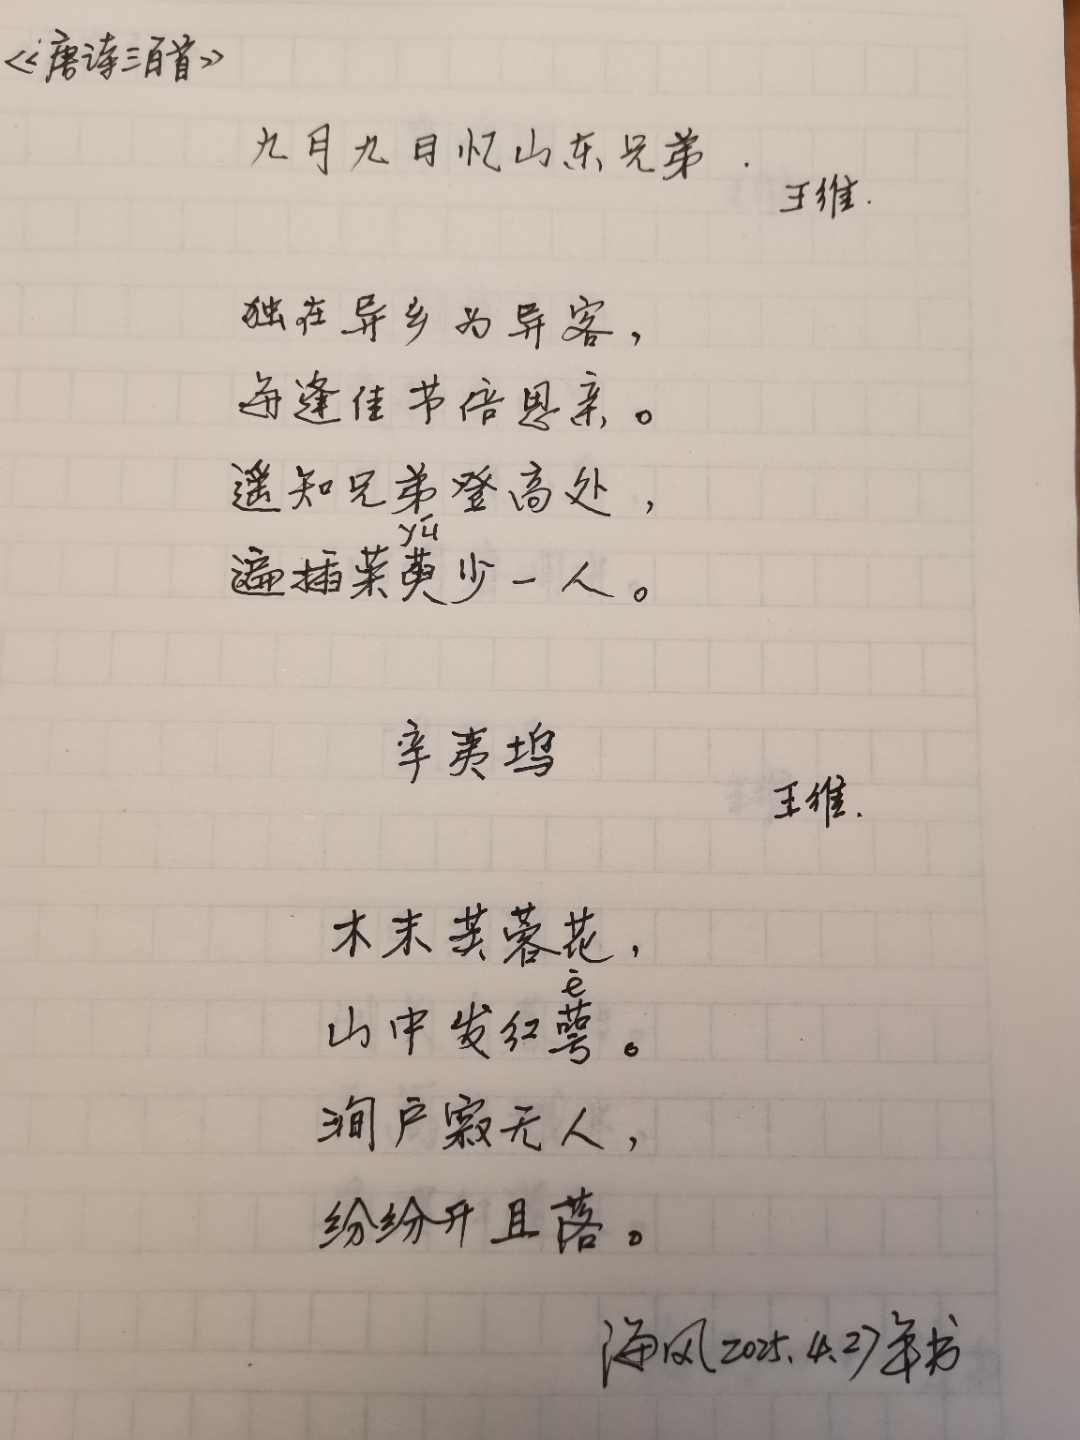 《唐诗三百首》
九月九日忆山东兄弟.
王维.
独在异乡为异客,
每逢佳节倍思亲。
遥知兄弟登高处,
yú
遍插茱萸少一人。
辛夷坞
王维.
木末芙蓉花,
è
山中发红萼。
涧户寂无人,
纷纷开且落。
海风2025.4.27年书